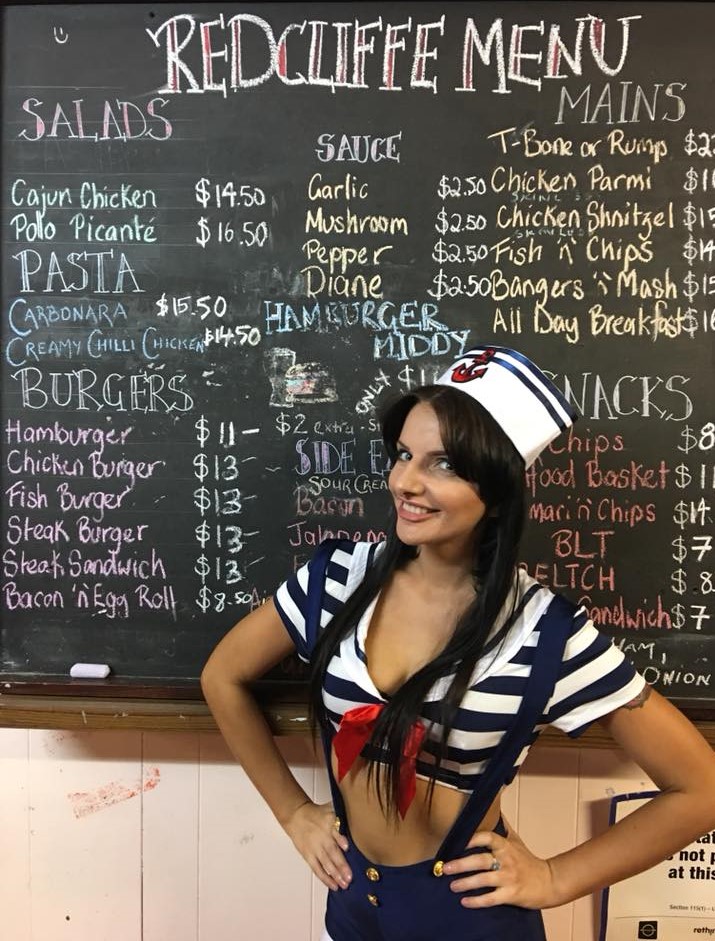 REDCLIFFE MENU
SALADS
Cajun Chicken $14.50
Pollo Picanté $16.50
PASTA
CARBONARA $15.50
CREAMY CHILLI CHICKEN $14.50
BURGERS
Hamburger $11-
Chicken Burger $13-
Fish Burger $13-
Steak Burger $13-
Steak Sandwich $13-
Bacon 'n Egg Roll $8.50
SAUCE
Garlic $2.50
Mushroom $2.50
Pepper $2.50
Diane $2.50
HAMBURGER
MIDDY
ONLY $1
$2 extra
SIDE
SOUR CREA
Bacon
Jalapen
MAINS
T-Bone or Rump $2
Chicken Parmi $1
Chicken Shnitzel $15
Fish 'n' Chips $14
Bangers 'n' Mash $15
All Day Breakfast $16
SNACKS
Chips $8
food Basket $11
mari 'n Chips $14
BLT $7
BELTCH $8
Sandwich $7
HAM,
ONION
not p
at this
Section 115(1)